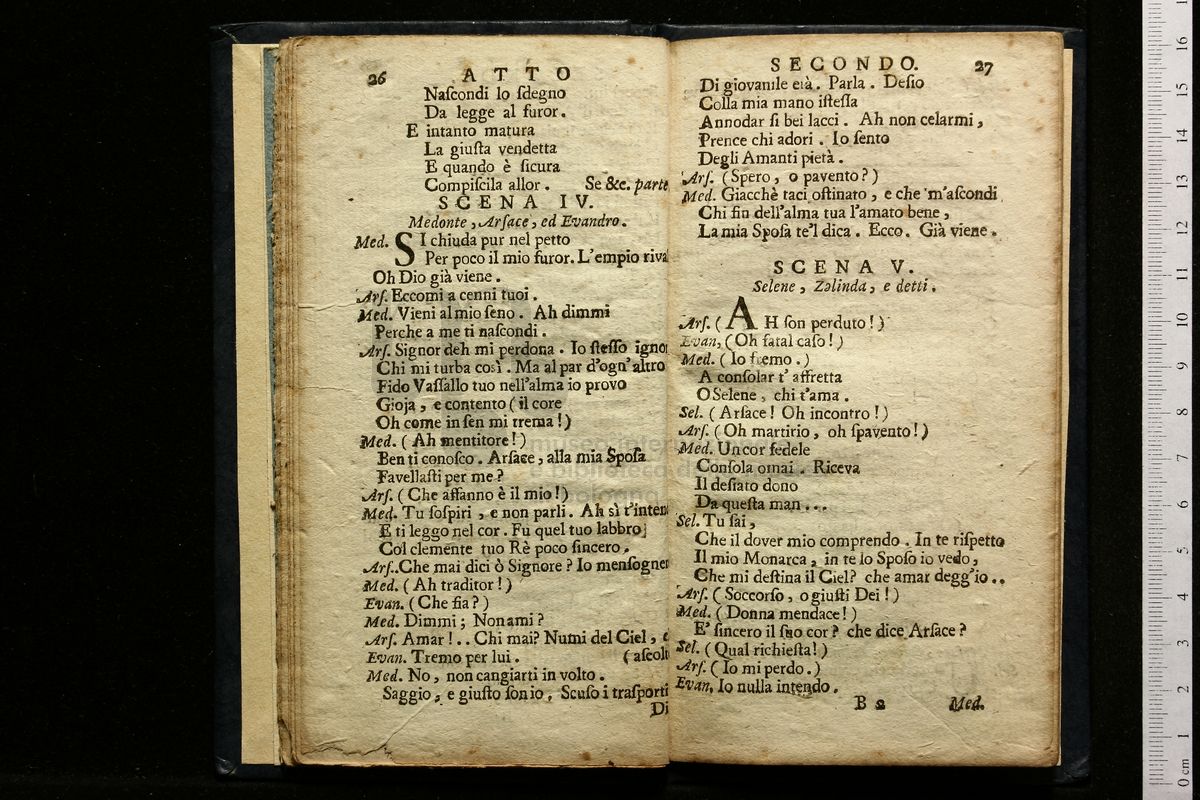 26 ATTO
Naſcondi lo ſdegno
Da legge al furor.
E intanto matura
La giuſta vendetta
E quando è ſicura
Compiſcila allor. Se &c. parte
SCENA IV.
Medonte, Arſace, ed Evandro.
Med. SI chiuda pur nel petto
Per poco il mio furor. L'empio riva
Oh Dio già viene.
Arſ. Eccomi a cenni tuoi.
Med. Vieni al mio ſeno. Ah dimmi
Perche a me ti naſcondi.
Arſ. Signor deh mi perdona. Io ſteſſo ignor
Chi mi turba così. Ma al par d'ogn'altro
Fido Vaſſallo tuo nell'alma io provo
Gioja, e contento (il core
Oh come in ſen mi trema!)
Med. (Ah mentitore!)
Ben ti conoſco. Arſace, alla mia Spoſa
Favellaſti per me?
Arſ. (Che affanno è il mio!)
Med. Tu ſoſpiri, e non parli. Ah sì t'inten
E ti leggo nel cor. Fu quel tuo labbro
Col clemente tuo Rè poco ſincero.
Arſ. Che mai dici ò Signore? Io menſogner
Med. (Ah traditor!)
Evan. (Che fia?)
Med. Dimmi; Non ami?
Arſ. Amar!.. Chi mai? Numi del Ciel, e
Evan. Tremo per lui. (aſcolt
Med. No, non cangiarti in volto.
Saggio, e giuſto ſon io, Scuſo i traſporti
Di
SECONDO. 27
Di giovanile età. Parla. Deſio
Colla mia mano iſteſſa
Annodar ſi bei lacci. Ah non celarmi,
Prence chi adori. Io ſento
Degli Amanti pietà.
Arſ. (Spero, o pavento?)
Med. Giacchè taci oſtinato, e che m'aſcondi
Chi fin dell'alma tua l'amato bene,
La mia Spoſa te'l dica. Ecco. Già viene.
SCENA V.
Selene, Zelinda, e detti.
Arſ. (AH ſon perduto!)
Evan, (Oh fatal caſo!)
Med. (Io fremo.)
A conſolar t'affretta
O Selene, chi t'ama.
Sel. (Arſace! Oh incontro!)
Arſ. (Oh martirio, oh ſpavento!)
Med. Un cor fedele
Conſola omai. Riceva
Il deſiato dono
Da queſta man...
Sel. Tu ſai,
Che il dover mio comprendo. In te riſpetto
Il mio Monarca, in te lo Spoſo io vedo,
Che mi deſtina il Ciel? che amar degg'io..
Arſ. (Soccorſo, o giuſti Dei!)
Med. (Donna mendace!)
E' ſincero il ſuo cor? che dice Arſace?
Sel. (Qual richieſta!)
Arſ. (Io mi perdo.)
Evan. Io nulla intendo.
B 2 Med.
museo internazionale
e biblioteca della
bologna
0 cm 1 2 3 4 5 6 7 8 9 10 11 12 13 14 15 16